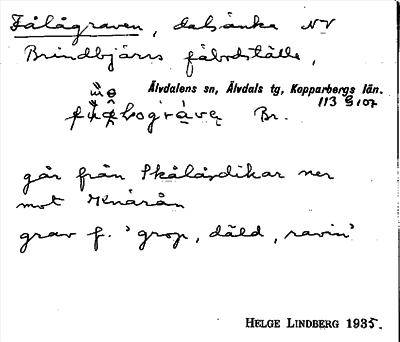 Fålågraven, dalsänka NV
Brindbjärs fäbodställe,
Älvdalens sn, Älvdals tg, Kopparbergs län.
113 G 107
Br.
går från Skålåsdikar ner
mot Knårån
grav f. 'grop, däld, ravin'
HELGE LINDBERG 1935.